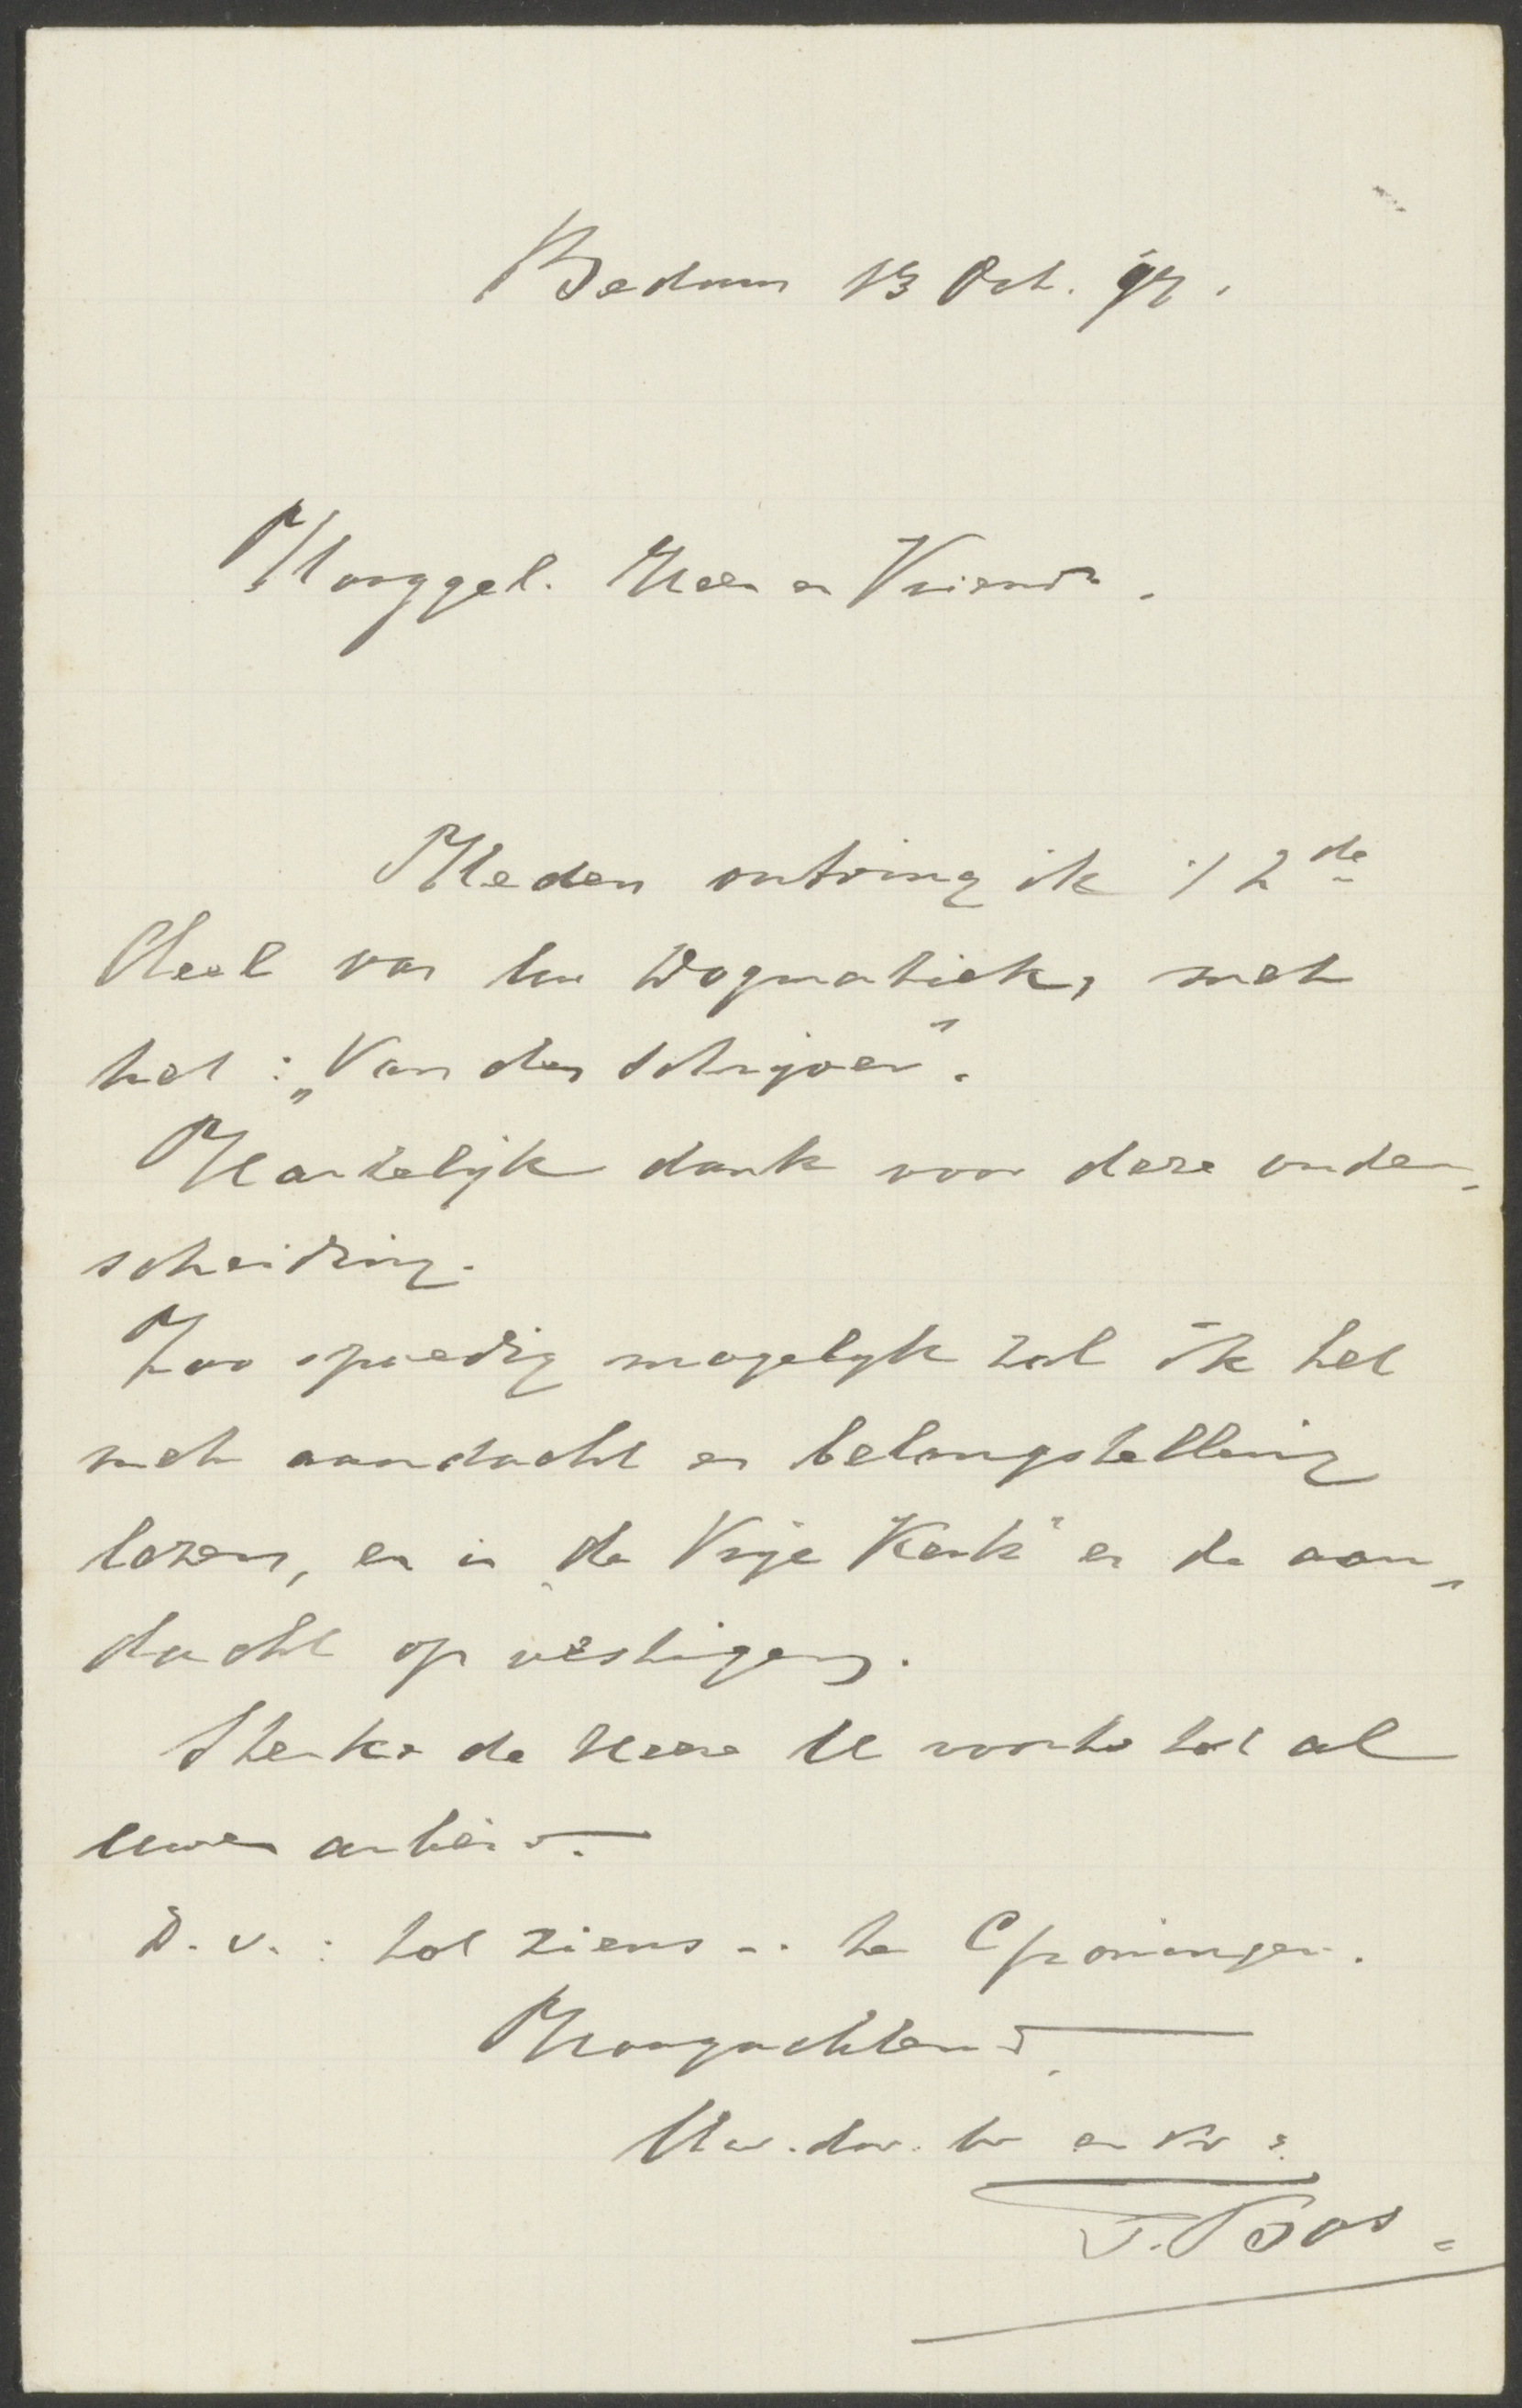 Bedum 13 Oct. 97.
Hooggel. Heer en Vriend.
Heden ontving ik 't 2de
deel van Uw Dogmatiek, met
het: „Van den Schrijver".
Hartelijk dank voor deze onder-
scheiding.
Zoo spoedig mogelijk zal ik het
met aandacht en belangstelling
lezen, en in „de Vrije Kerk" er de aan-
dacht op vestigen.
Sterke de Heere U voorts tot al
Uwen arbeid.
D.V.: tot ziens .. te Groningen.
Hoogachtend,
Uw. dw. br en vr:
T. Bos.